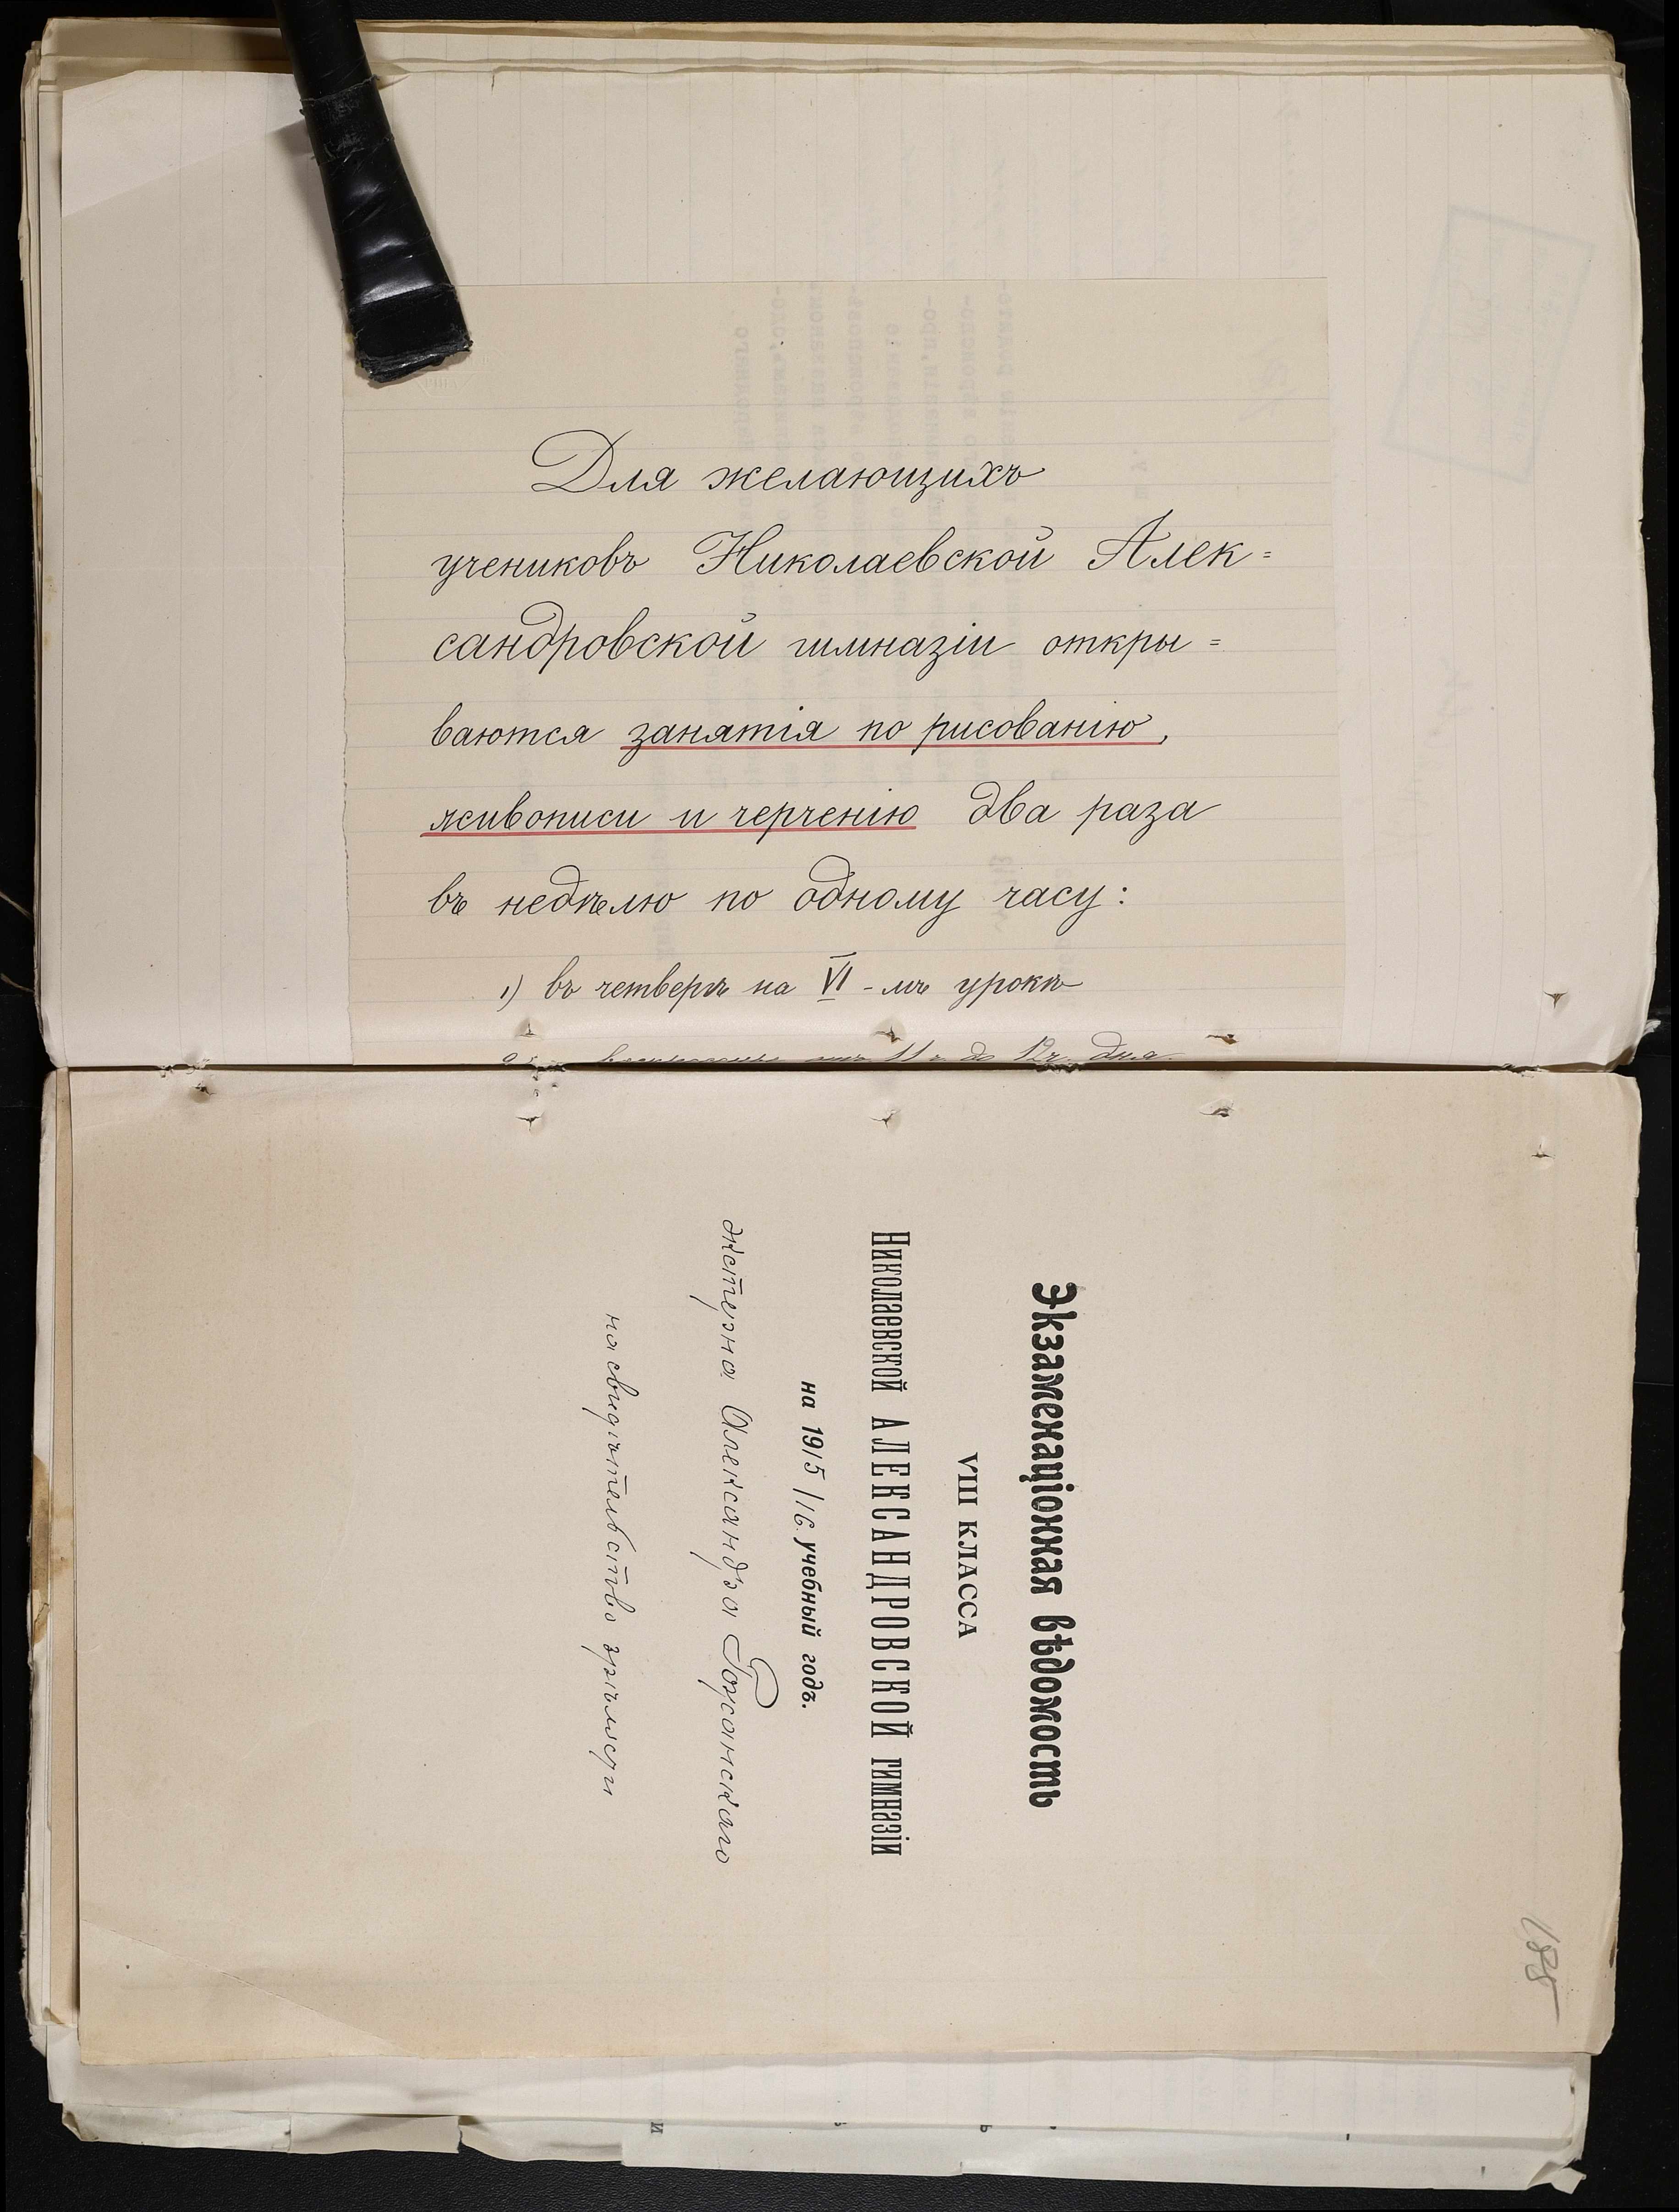 Для желающихъ
учениковъ Николаевской Алек=
сандровской гимназіи откры=
ваются занятія по рисованію,
живописи и черченію два раза
въ недѣлю по одному часу:
1) въ четвергъ на VI-мъ урокѣ
11 ч. до 12 ч. дня.
Экзаменаціонная вѣдомость
VIII КЛАССА
Николаевской АЛЕКСАНДРОВСКОЙ гимназіи
на 1915/16 учебный годъ.
экстерна Александра Гожанскаго
на свидѣтельство зрѣлости
188